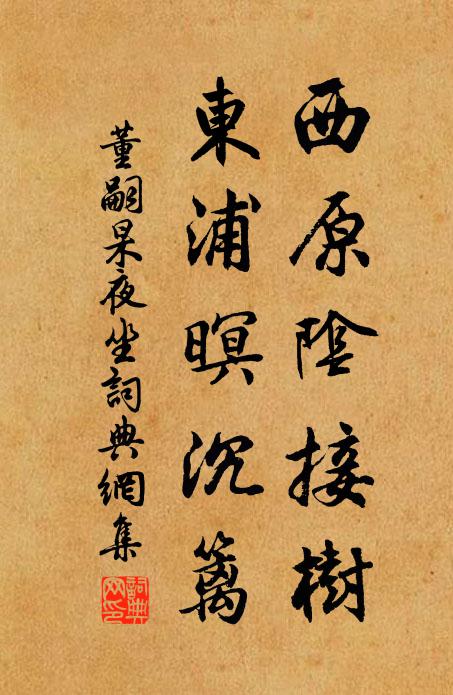 西原陰接樹
東浦暝沉篱
董嗣杲夜坐詞典網集
詞典網印